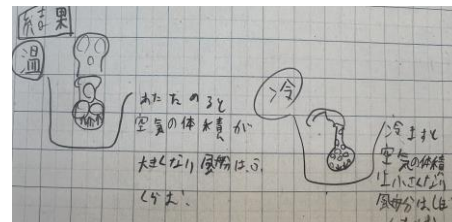 結果
温
あたためると
空気の体積が
大きくなり風船は、ふ
くらむ。
冷
冷ますと
空気の体積
は小さくなり
風船は